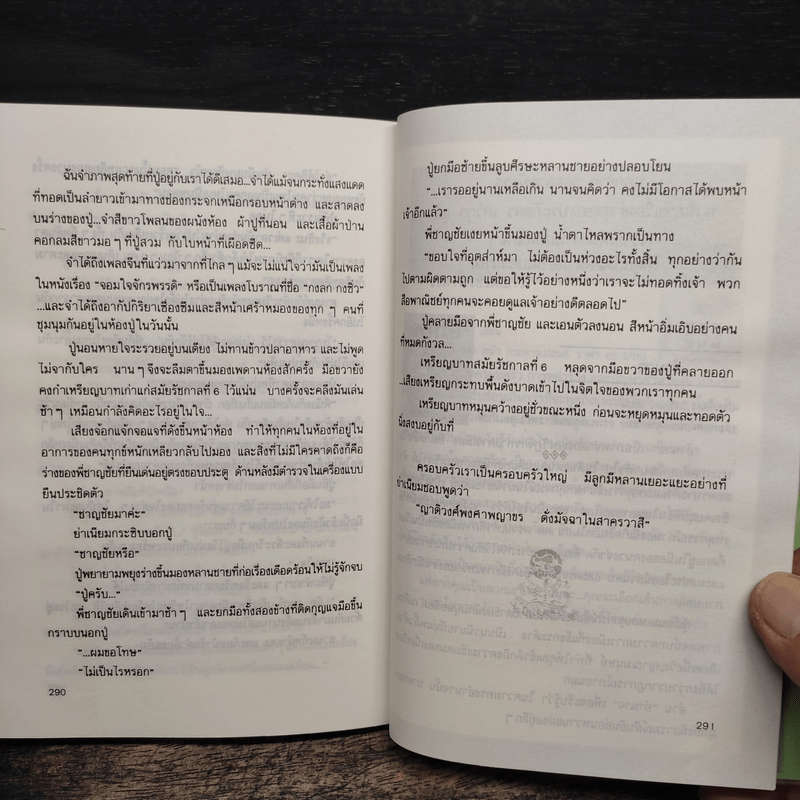 ฉันจำภาพสุดท้ายที่ปู่อยู่กับเราได้ดีเสมอ...จำได้แม้จนกระทั่งแสงแดด
ที่ทอดเป็นลำยาวเข้ามาทางช่องกระจกเหนือกรอบหน้าต่าง และสาดลง
บนร่างของปู่...จำสีขาวโพลนของผนังห้อง ผ้าปูที่นอน และเสื้อผ้าป่าน
คอกลมสีขาวมอๆ ที่ปู่สวม กับใบหน้าที่เผือดซีด...
จำได้ถึงเพลงจีนที่แว่วมาจากที่ไกลๆ แม้จะไม่แน่ใจว่ามันเป็นเพลง
ในหนังเรื่อง “จอมใจจักรพรรดิ” หรือเป็นเพลงโบราณที่ชื่อ “กงลก กงชิ่ว”
...และจำได้ถึงอากัปกิริยาเซื่องซึมและสีหน้าเศร้าหมองของทุก ๆ คนที่
ชุมนุมกันอยู่ในห้องปู่ในวันนั้น
ปู่นอนหายใจระรวยอยู่บนเตียง ไม่ทานข้าวปลาอาหาร และไม่พูด
ไม่จากับใคร นานๆ จึงจะลืมตาขึ้นมองเพดานห้องสักครั้ง มือขวายัง
คงกำเหรียญบาทเก่าแก่สมัยรัชกาลที่ 6 ไว้แน่น บางครั้งจะคลึงมันเล่น
ช้าๆ เหมือนกำลังคิดอะไรอยู่ในใจ...
เสียงจ้อกแจ้กจอแจที่ดังขึ้นหน้าห้อง ทำให้ทุกคนในห้องที่อยู่ใน
อาการของคนทุกข์หนักเหลียวกลับไปมอง และสิ่งที่ไม่มีใครคาดถึงก็คือ
ร่างของพี่ชาญชัยที่ยืนเด่นอยู่ตรงขอบประตู ด้านหลังมีตำรวจในเครื่องแบบ
ยืนประชิดตัว
“ชาญชัยมาค่ะ”
ย่าเนียมกระซิบบอกปู่
“ชาญชัยหรือ”
ปู่พยายามพยุงร่างขึ้นมองหลานชายที่ก่อเรื่องเดือดร้อนให้ไม่รู้จักจบ
“ปู่ครับ...”
พี่ชาญชัยเดินเข้ามาช้าๆ และยกมือทั้งสองข้างที่ติดกุญแจมือขึ้น
กราบบนอกปู่
“...ผมขอโทษ”
“ไม่เป็นไรหรอก”
290
ปู่ยกมือซ้ายขึ้นลูบศีรษะหลานชายอย่างปลอบโยน
“...เรารออยู่นานเหลือเกิน นานจนคิดว่า คงไม่มีโอกาสได้พบหน้า
เจ้าอีกแล้ว”
พี่ชาญชัยเงยหน้าขึ้นมองปู่ น้ำตาไหลพรากเป็นทาง
“ขอบใจที่อุตส่าห์มา ไม่ต้องเป็นห่วงอะไรทั้งสิ้น ทุกอย่างว่ากัน
ไปตามผิดตามถูก แต่ขอให้รู้ไว้อย่างหนึ่งว่าเราจะไม่ทอดทิ้งเจ้า พวก
ลือพาณิชย์ทุกคนจะคอยดูแลเจ้าอย่างดีตลอดไป”
ปู่คลายมือจากพี่ชาญชัย และเอนตัวลงนอน สีหน้าอิ่มเอิบอย่างคน
ที่หมดกังวล...
เหรียญบาทสมัยรัชกาลที่ 6 หลุดจากมือขวาของปู่ที่คลายออก
...เสียงเหรียญกระทบพื้นดังบาดเข้าไปในจิตใจของพวกเราทุกคน
เหรียญบาทหมุนคว้างอยู่ชั่วขณะหนึ่ง ก่อนจะหยุดหมุนและทอดตัว
นิ่งสงบอยู่กับที่
ครอบครัวเราเป็นครอบครัวใหญ่ มีลูกมีหลานเยอะแยะอย่างที่
ย่าเนียมชอบพูดว่า
“ญาติวงศ์พงศาพญาขร ดั่งมัจฉาในสาครวาสี”
291